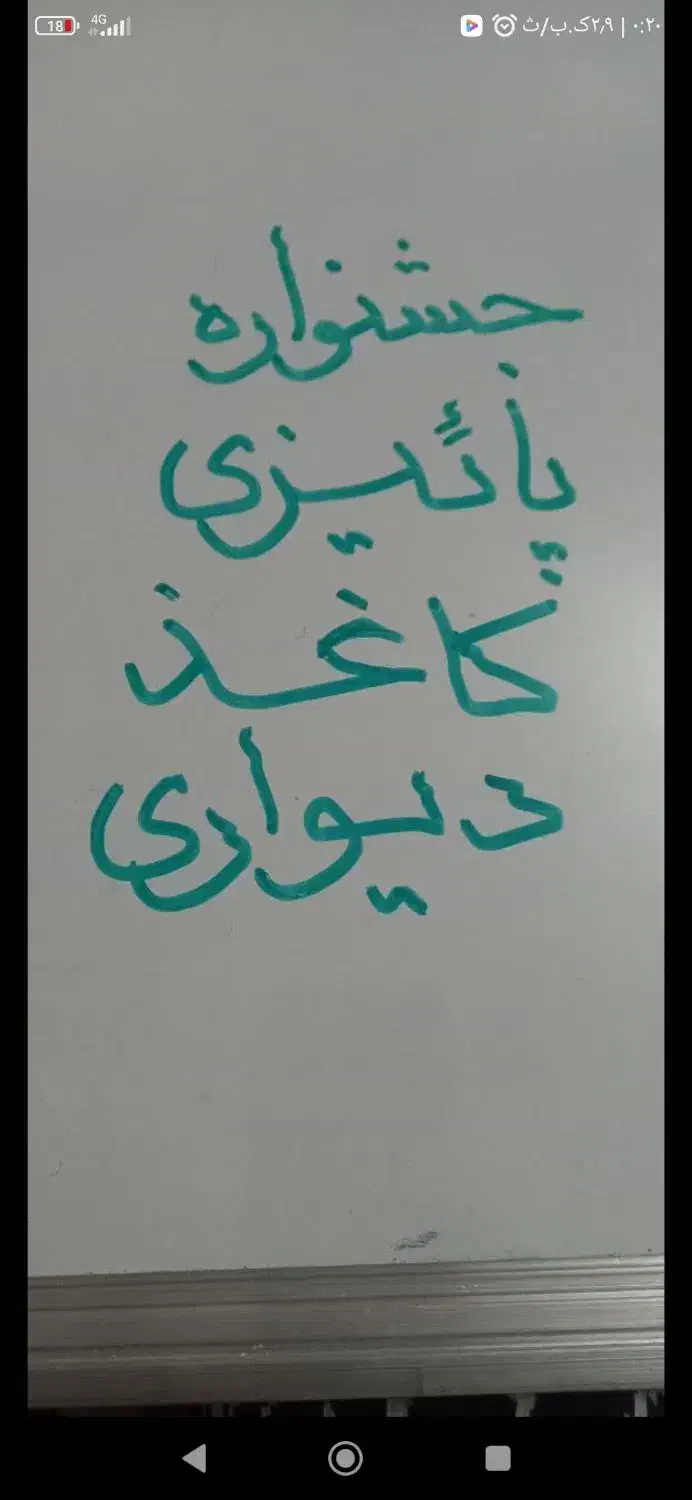 18 4G ۲٫۹ک.ب/ث | ۰:۲۰
جشنواره
پائیزی
کاغذ
دیواری